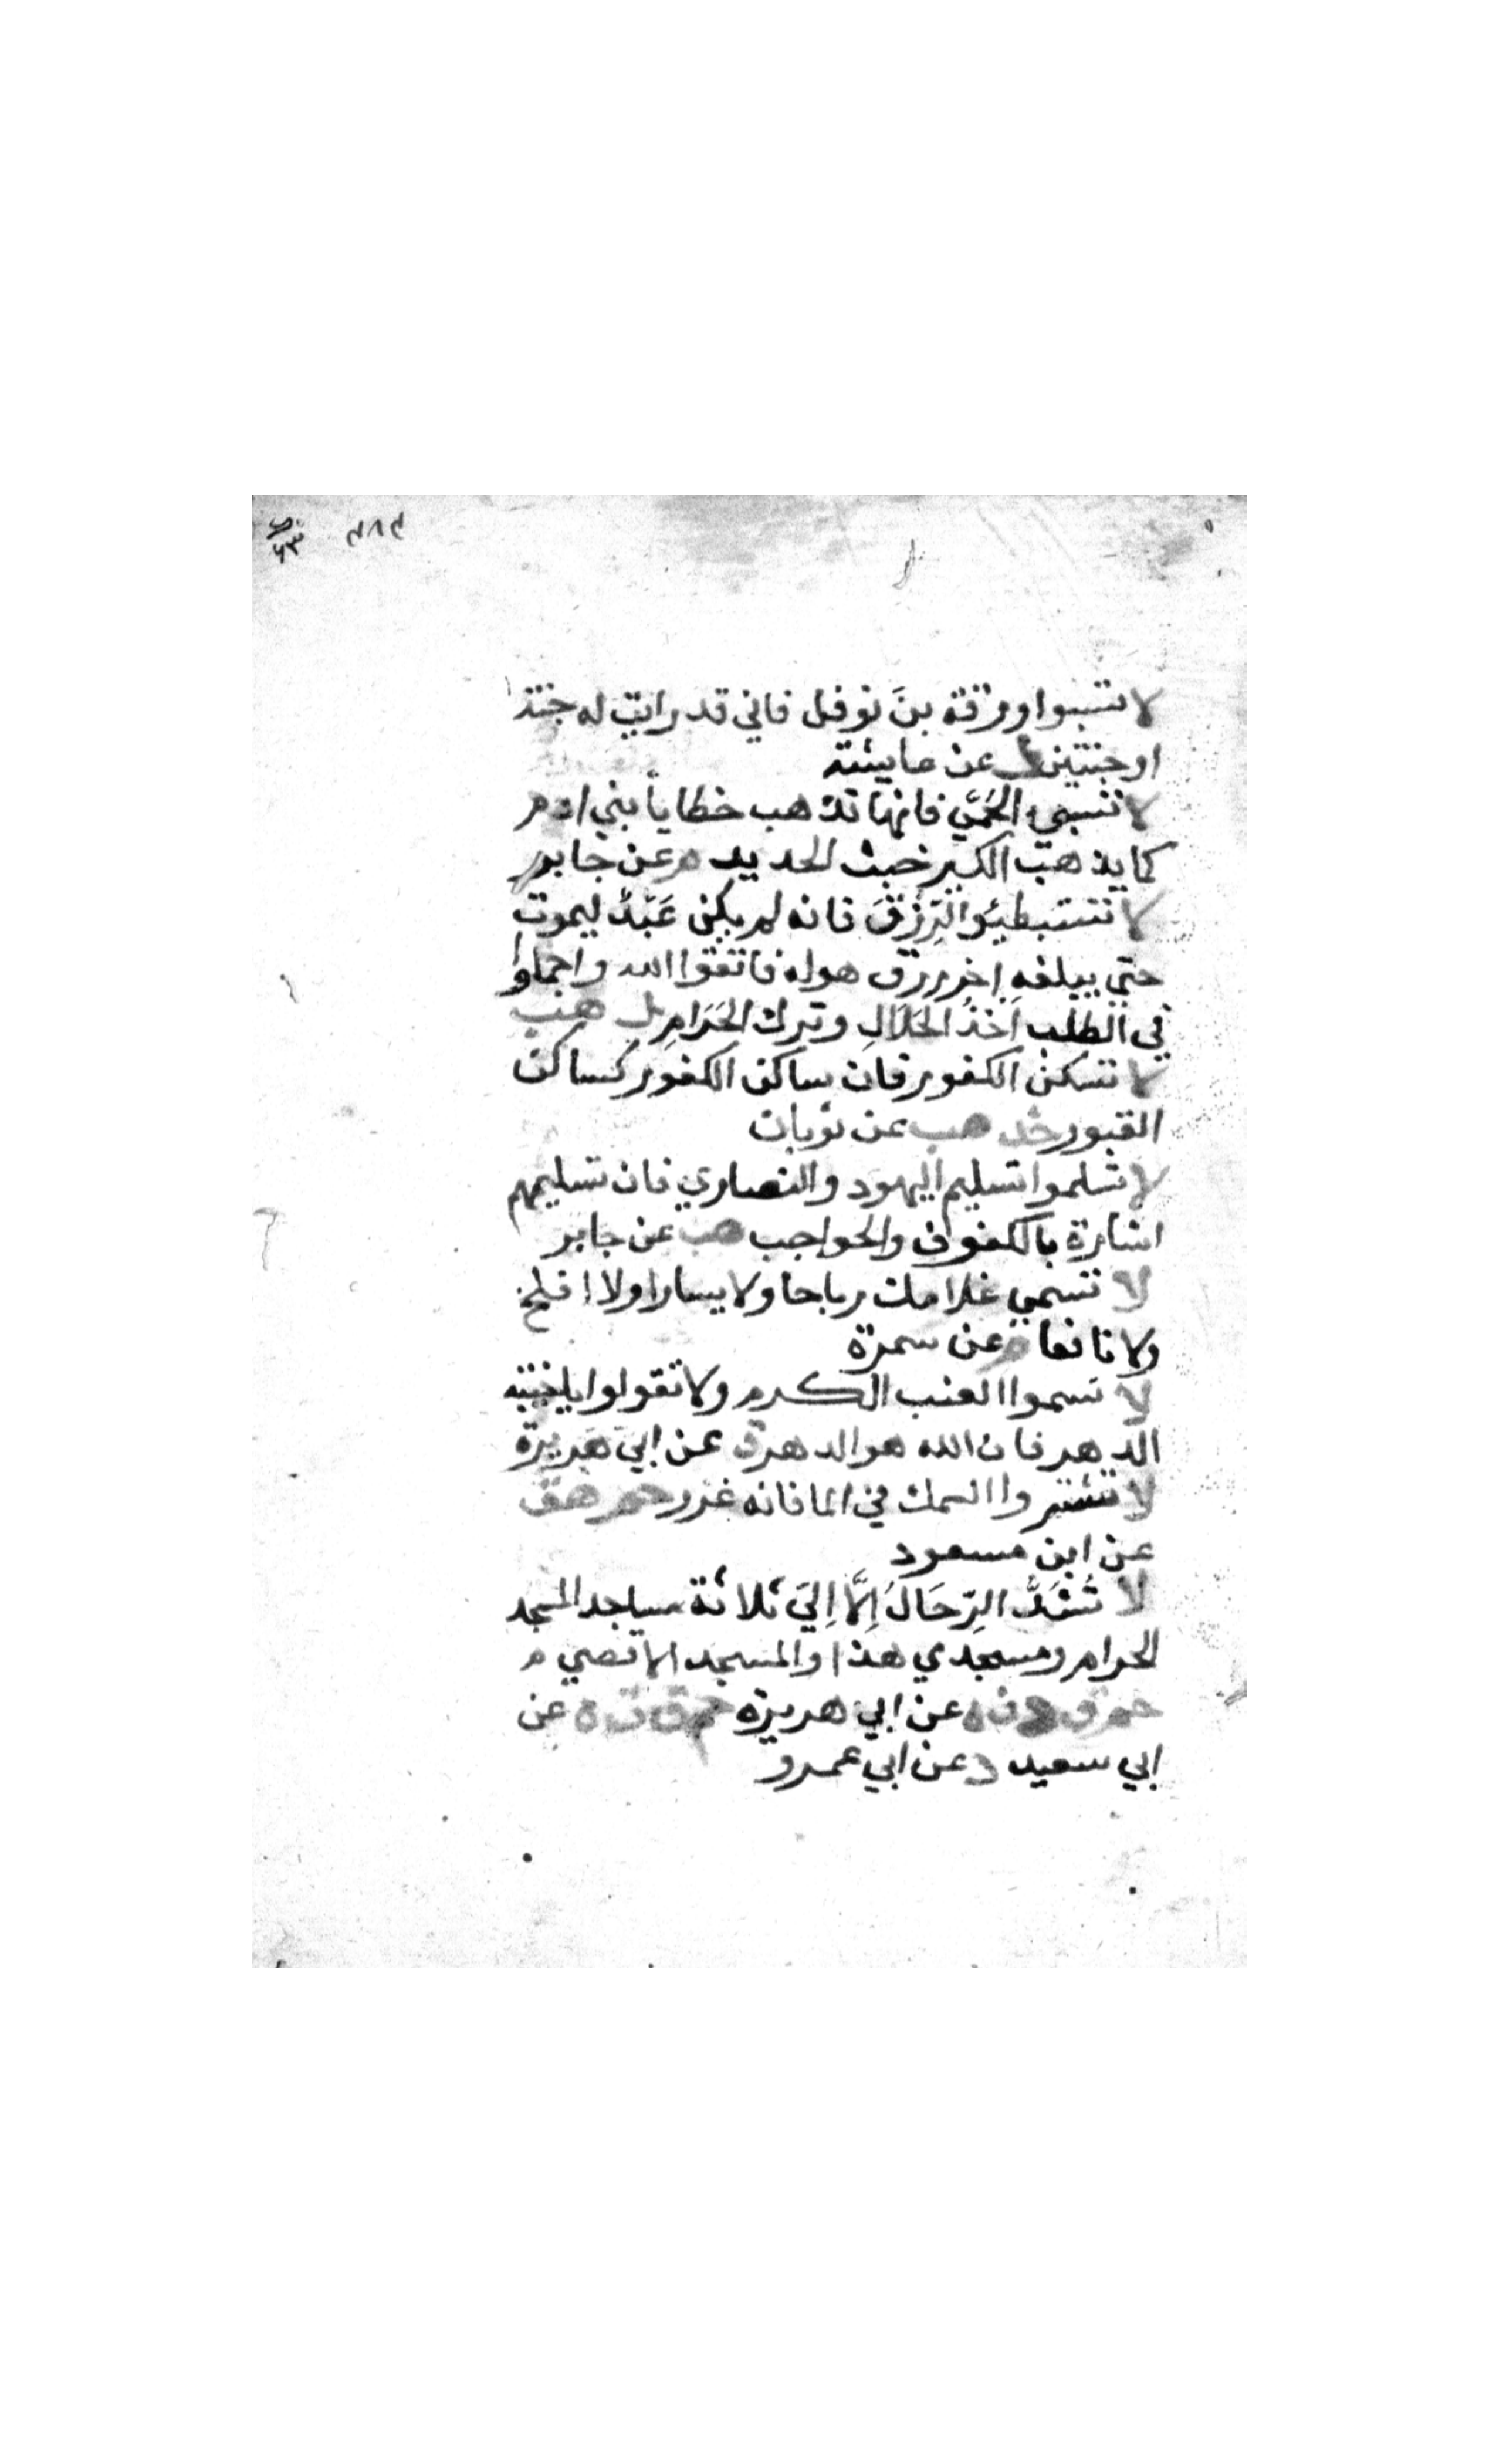 لا تسبوا ورقة بنَ نوفل فاني قد رايت له جنة
او جنتين ك عن عايشة
لا تسبي الحُمَّي فانها تذهب خطايا بني ادم
كما يذهب الكير خبث الحديد م عن جابر
لا تستبطئوا الرِزْقَ فانه لم يكن عَبْدٌ ليموت
حتي يبلغه اخر رزق هو له فاتقوا الله واجملوا
في الطلب اَخذُ الحَلَالِ وترك الحَرَامِ ك هب
لا تسكن الكفور فان ساكن الكفور كساكن
القبور خد هب عن ثوبان
لا تسلموا تسليم اليهود والنصاري فان تسليمهم
اشارة بالكفوف والحواجب هب عن جابر
لا تسمي غلامك رباحا ولا يسارا ولا افلح
ولا نافعا م عن سمرة
لا تسموا العنب الكرم ولا تقولوا ياخيبة
الدهر فان الله هو الدهر ق عن ابي هَريرة
لا تشتروا السمك في الما فانه غرر حم هق
عن ابن مسعود
لا تُشَدُّ الرِحَالُ اِلَّا اِليَ ثلاثة مساجد المسجد
الحرام ومسجدي هذا والمسجد الاقصي م
حم ق د ن ه عن ابي هريرة حم ق ت ه عن
ابي سعيد د عن ابي عمرو